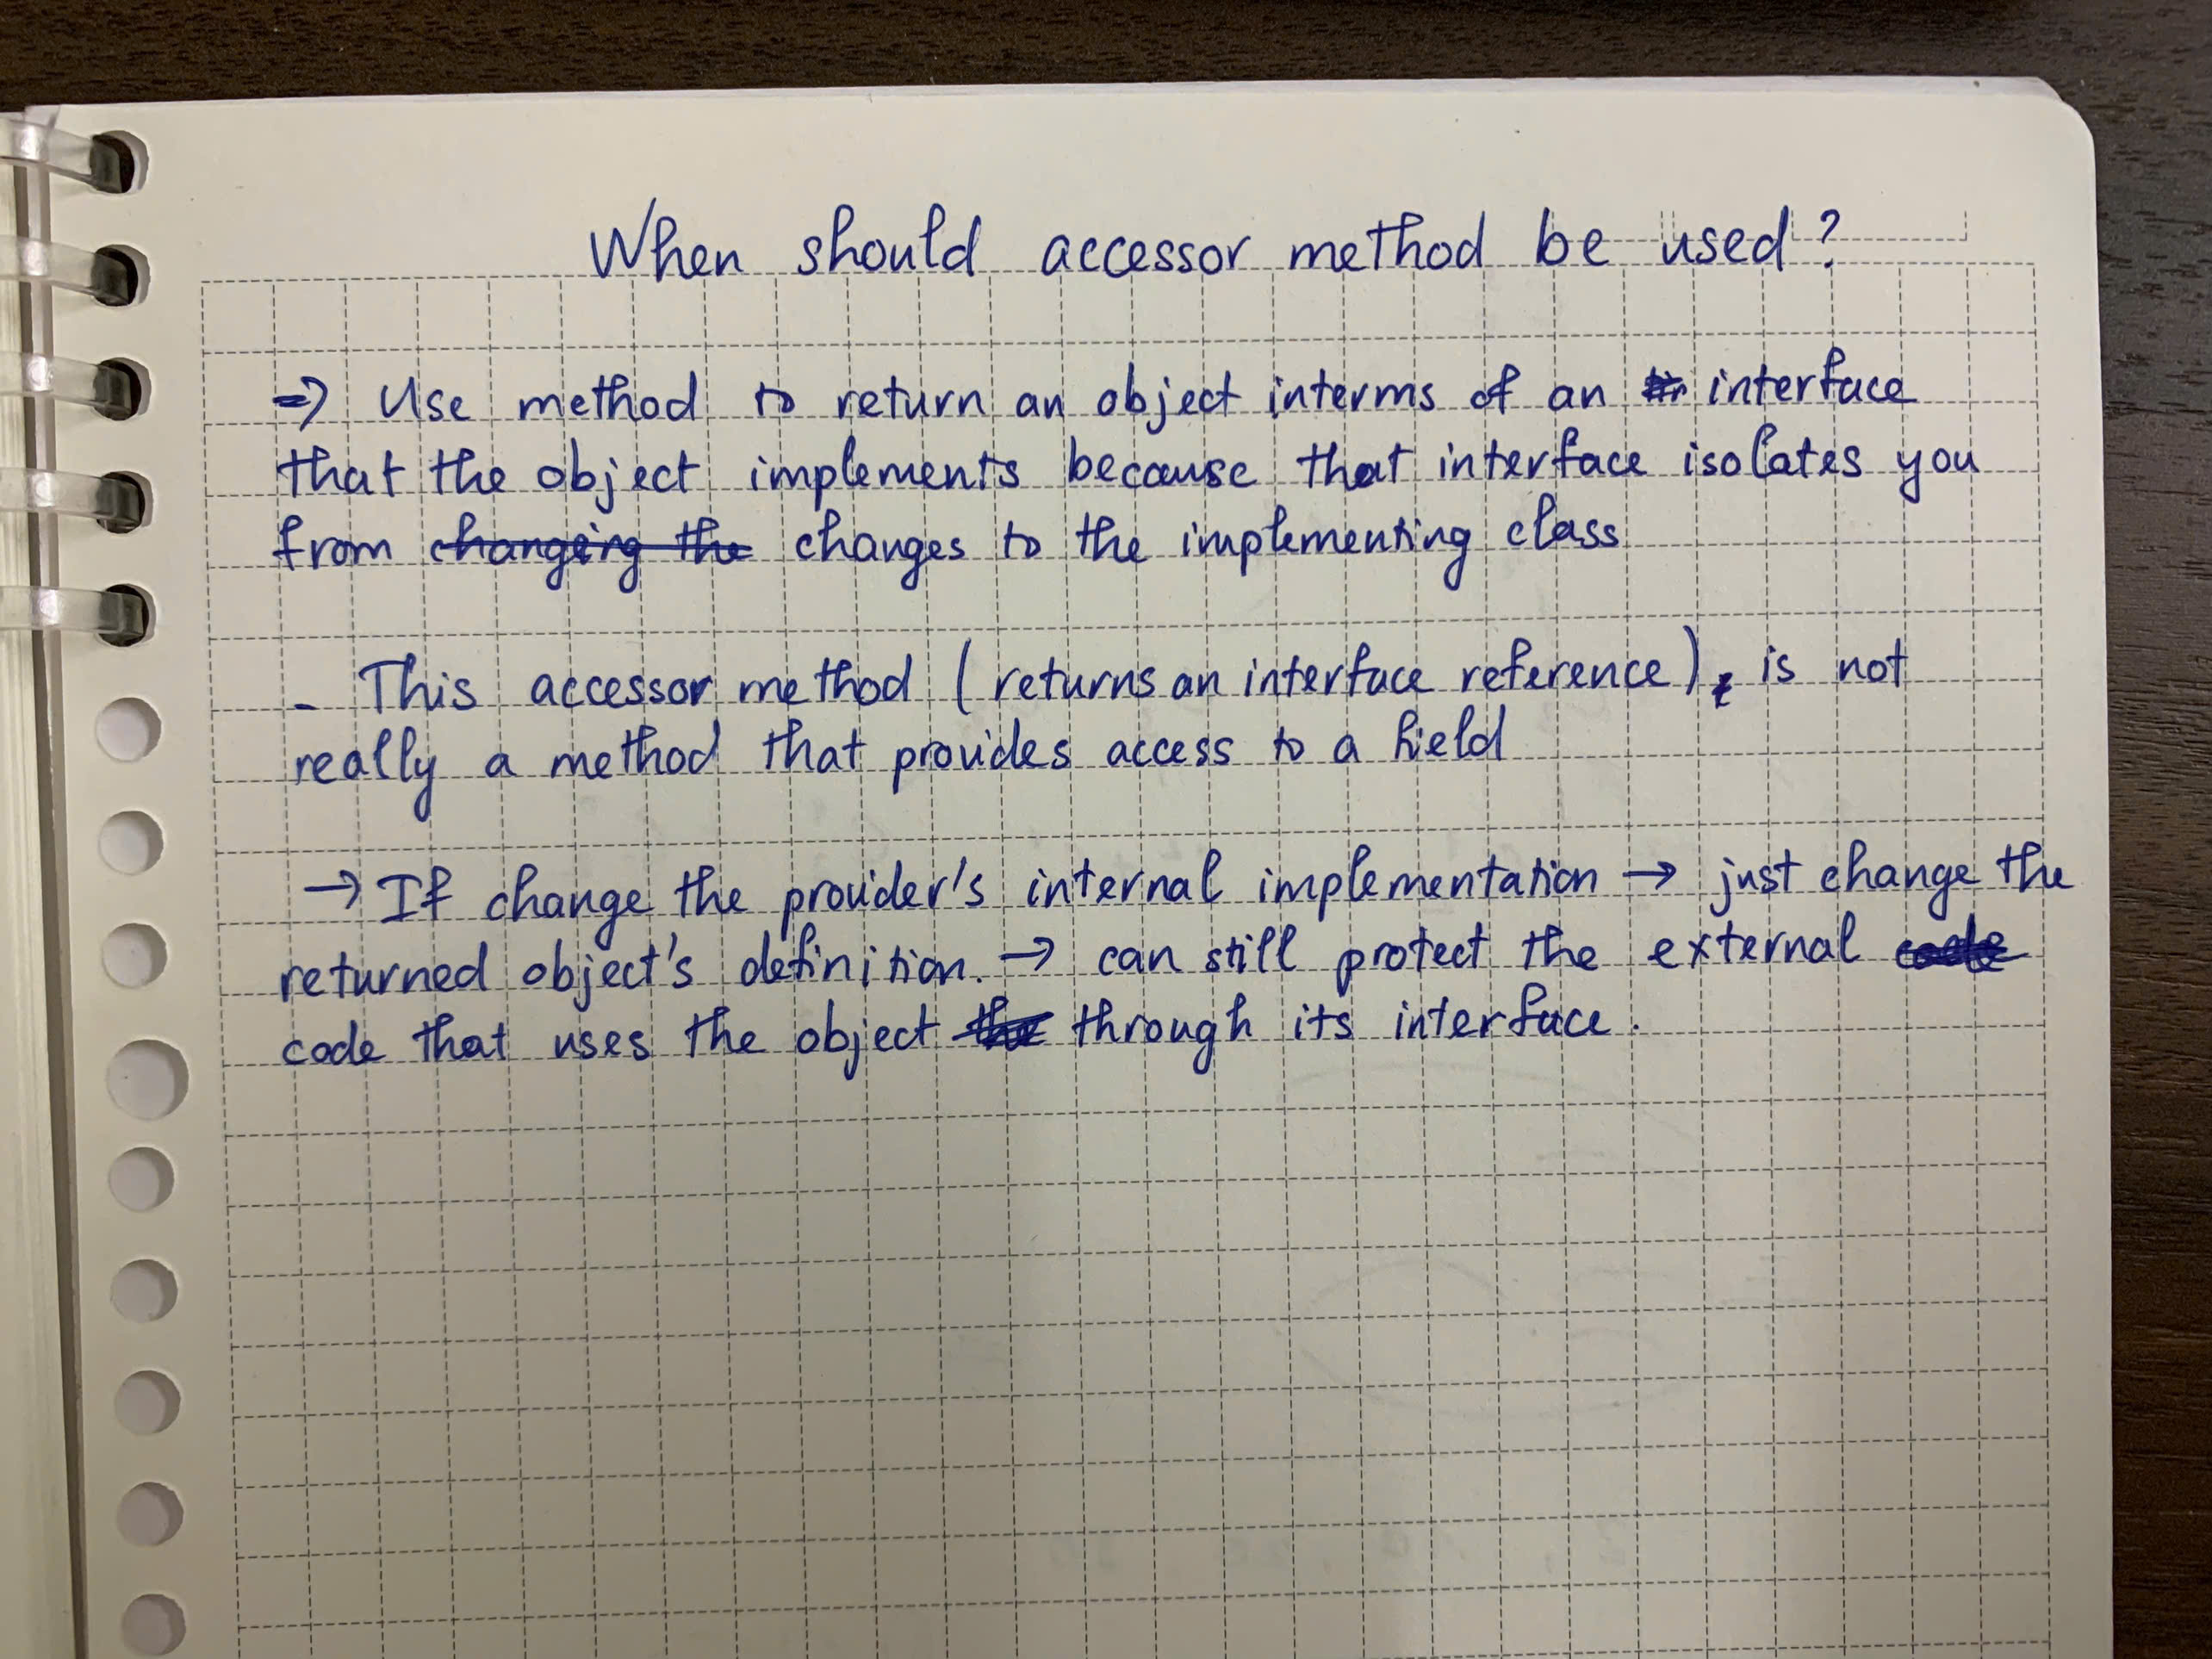 When should accessor method be used?
=> Use method to return an object interms of an interface
that the object implements because that interface isolates you
from changing the changes to the implementing class
- This accessor method (returns an interface reference), is not
really a method that provides access to a field
→ If change the provider's internal implementation → just change the
returned object's definition. → can still protect the external code
code that uses the object the through its interface.